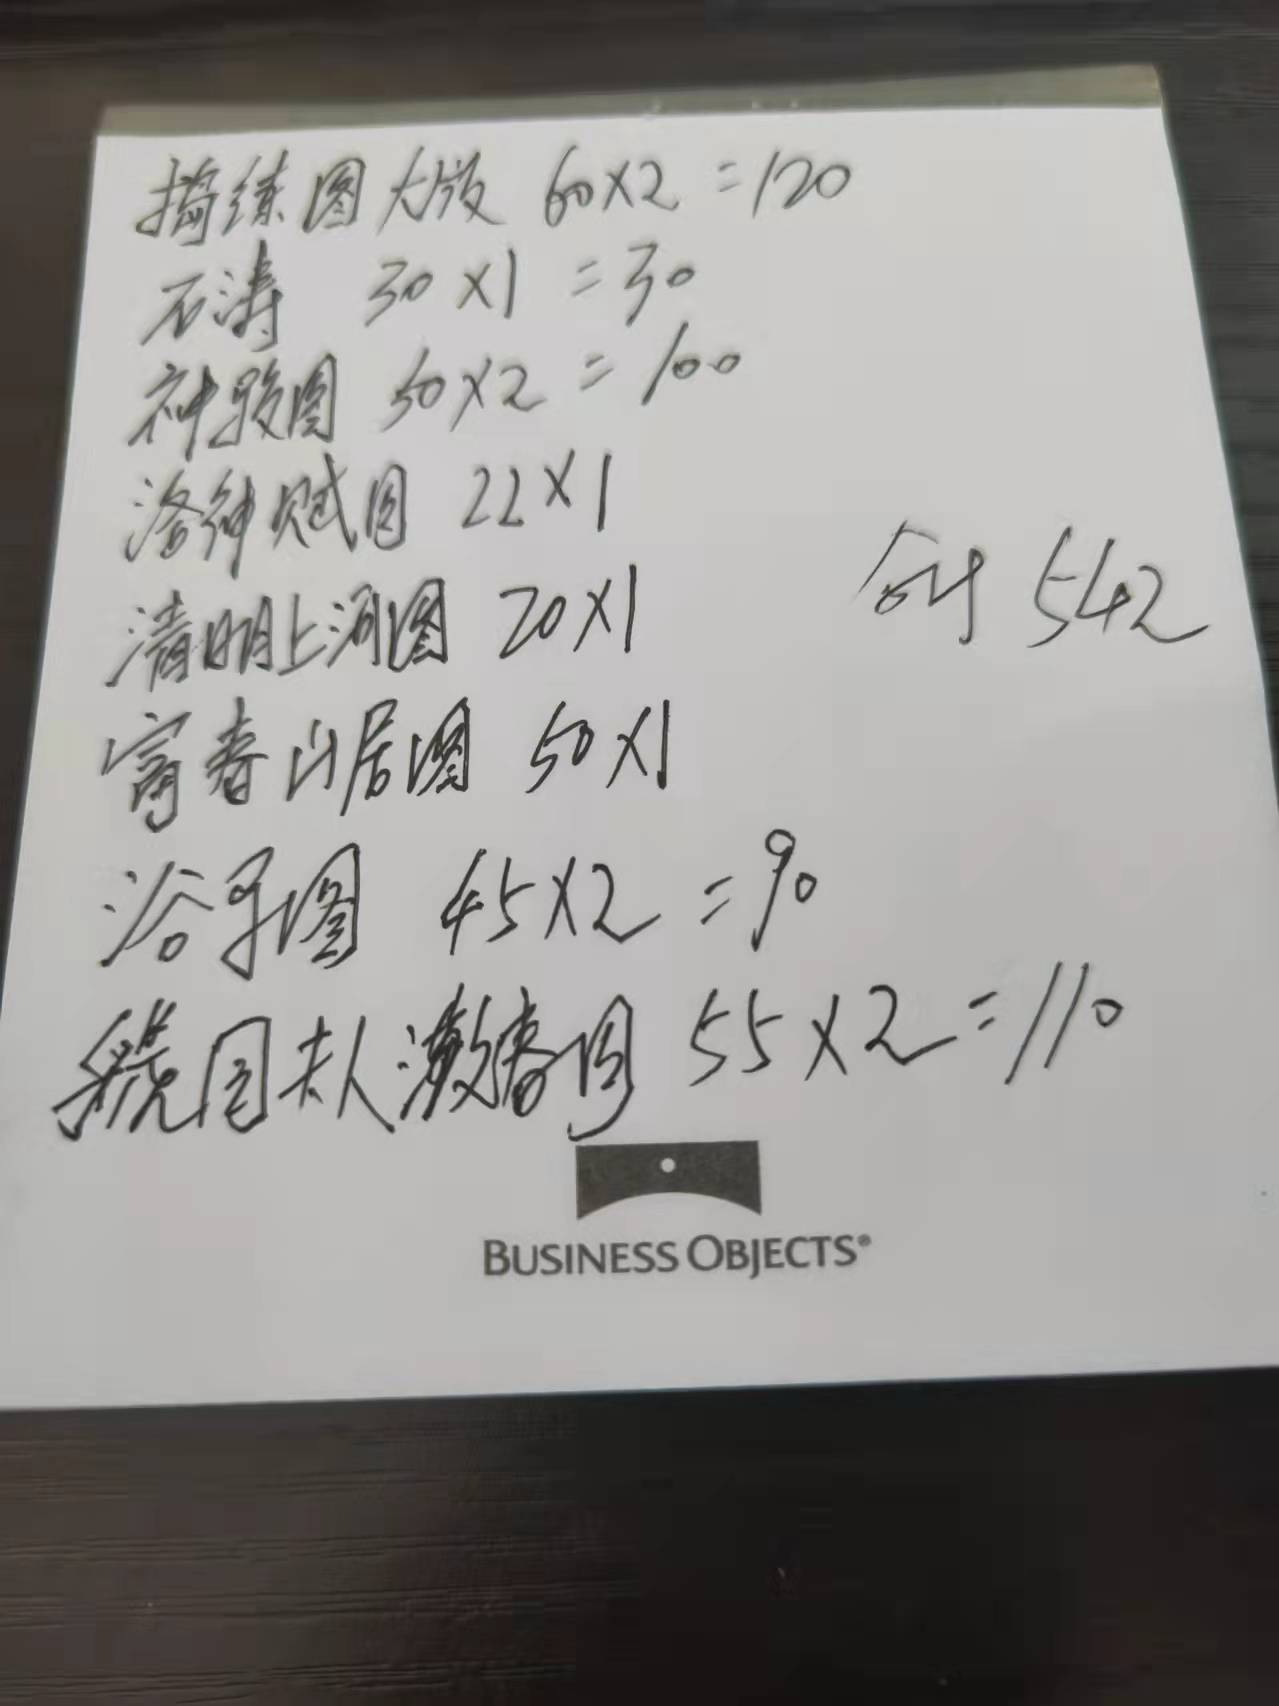 捣练图大版 60×2=120
石涛 30×1=30
神骏图 50×2=100
洛神赋图 22×1
清明上河图 20×1
合计 542
富春山居图 50×1
浴子图 45×2=90
虢国夫人游春图 55×2=110
BUSINESS OBJECTS®